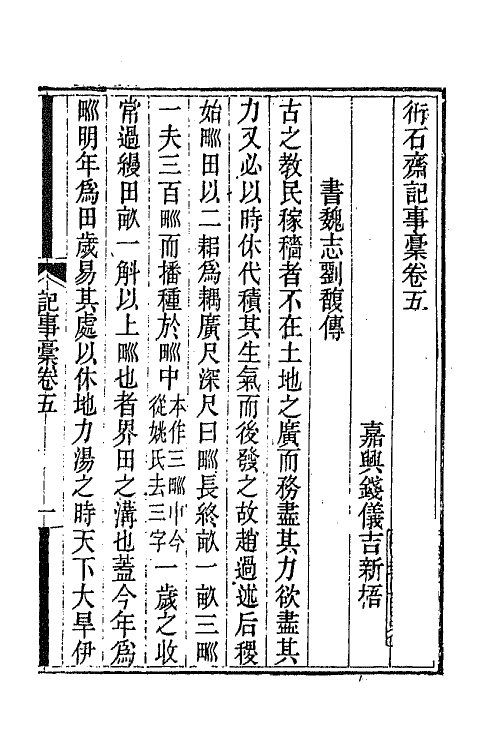 衎石齋記事稾卷五
嘉興錢儀吉新梧
書魏志劉馥傳
古之教民稼穡者不在土地之廣而務盡其力欲盡其
力又必以時休代積其生氣而後發之故趙過述后稷
始甽田以二耜爲耦廣尺深尺曰甽長終畝一畝三甽
一夫三百甽而播種於甽中本作三甽中今從姚氏去三字一歲之收
常過縵田畝一斛以上甽也者界田之溝也蓋今年爲
甽明年爲田歲易其處以休地力湯之時天下大旱伊
記事稾卷五
一